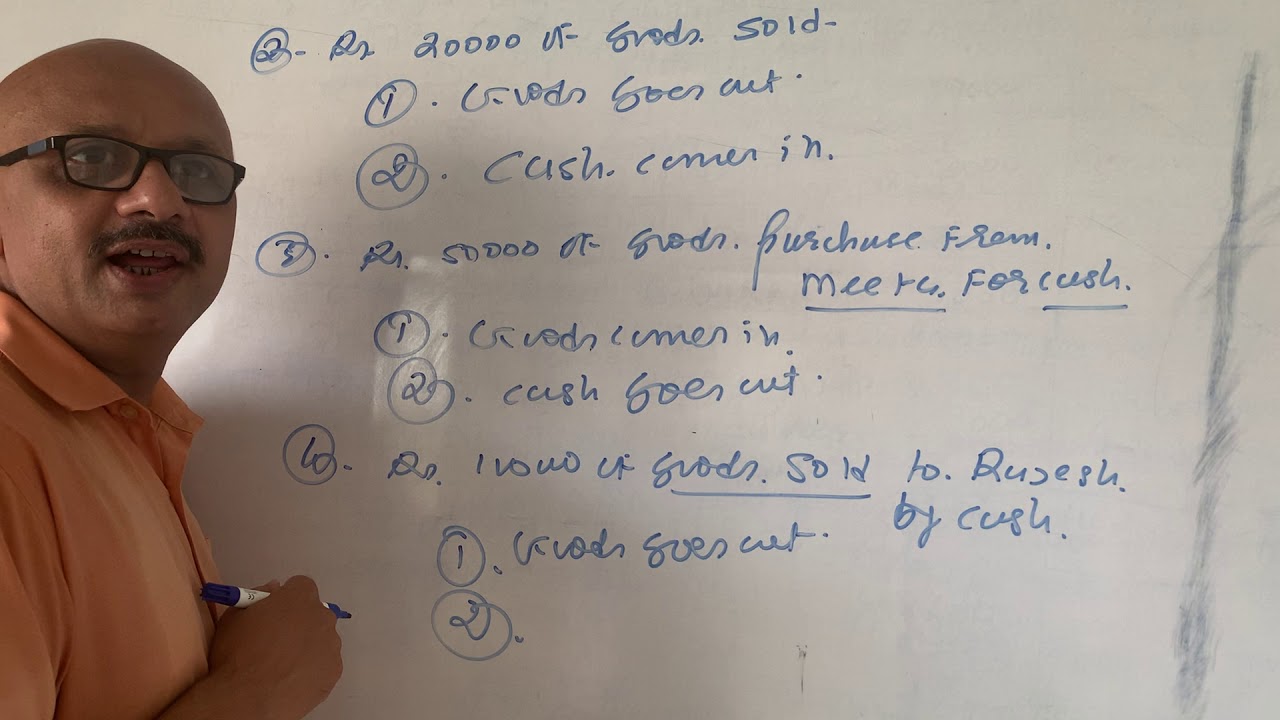 2. Rs. 20000 of goods. sold-
1. Goods goes out.
2. Cash. comes in.
3. Rs. 50000 of goods. purchase from.
meera. For cash.
1. Goods comes in.
2. cash goes out.
4. Rs. 10000 of goods. sold to. Rajesh.
by cash.
1. Goods goes out.
2.